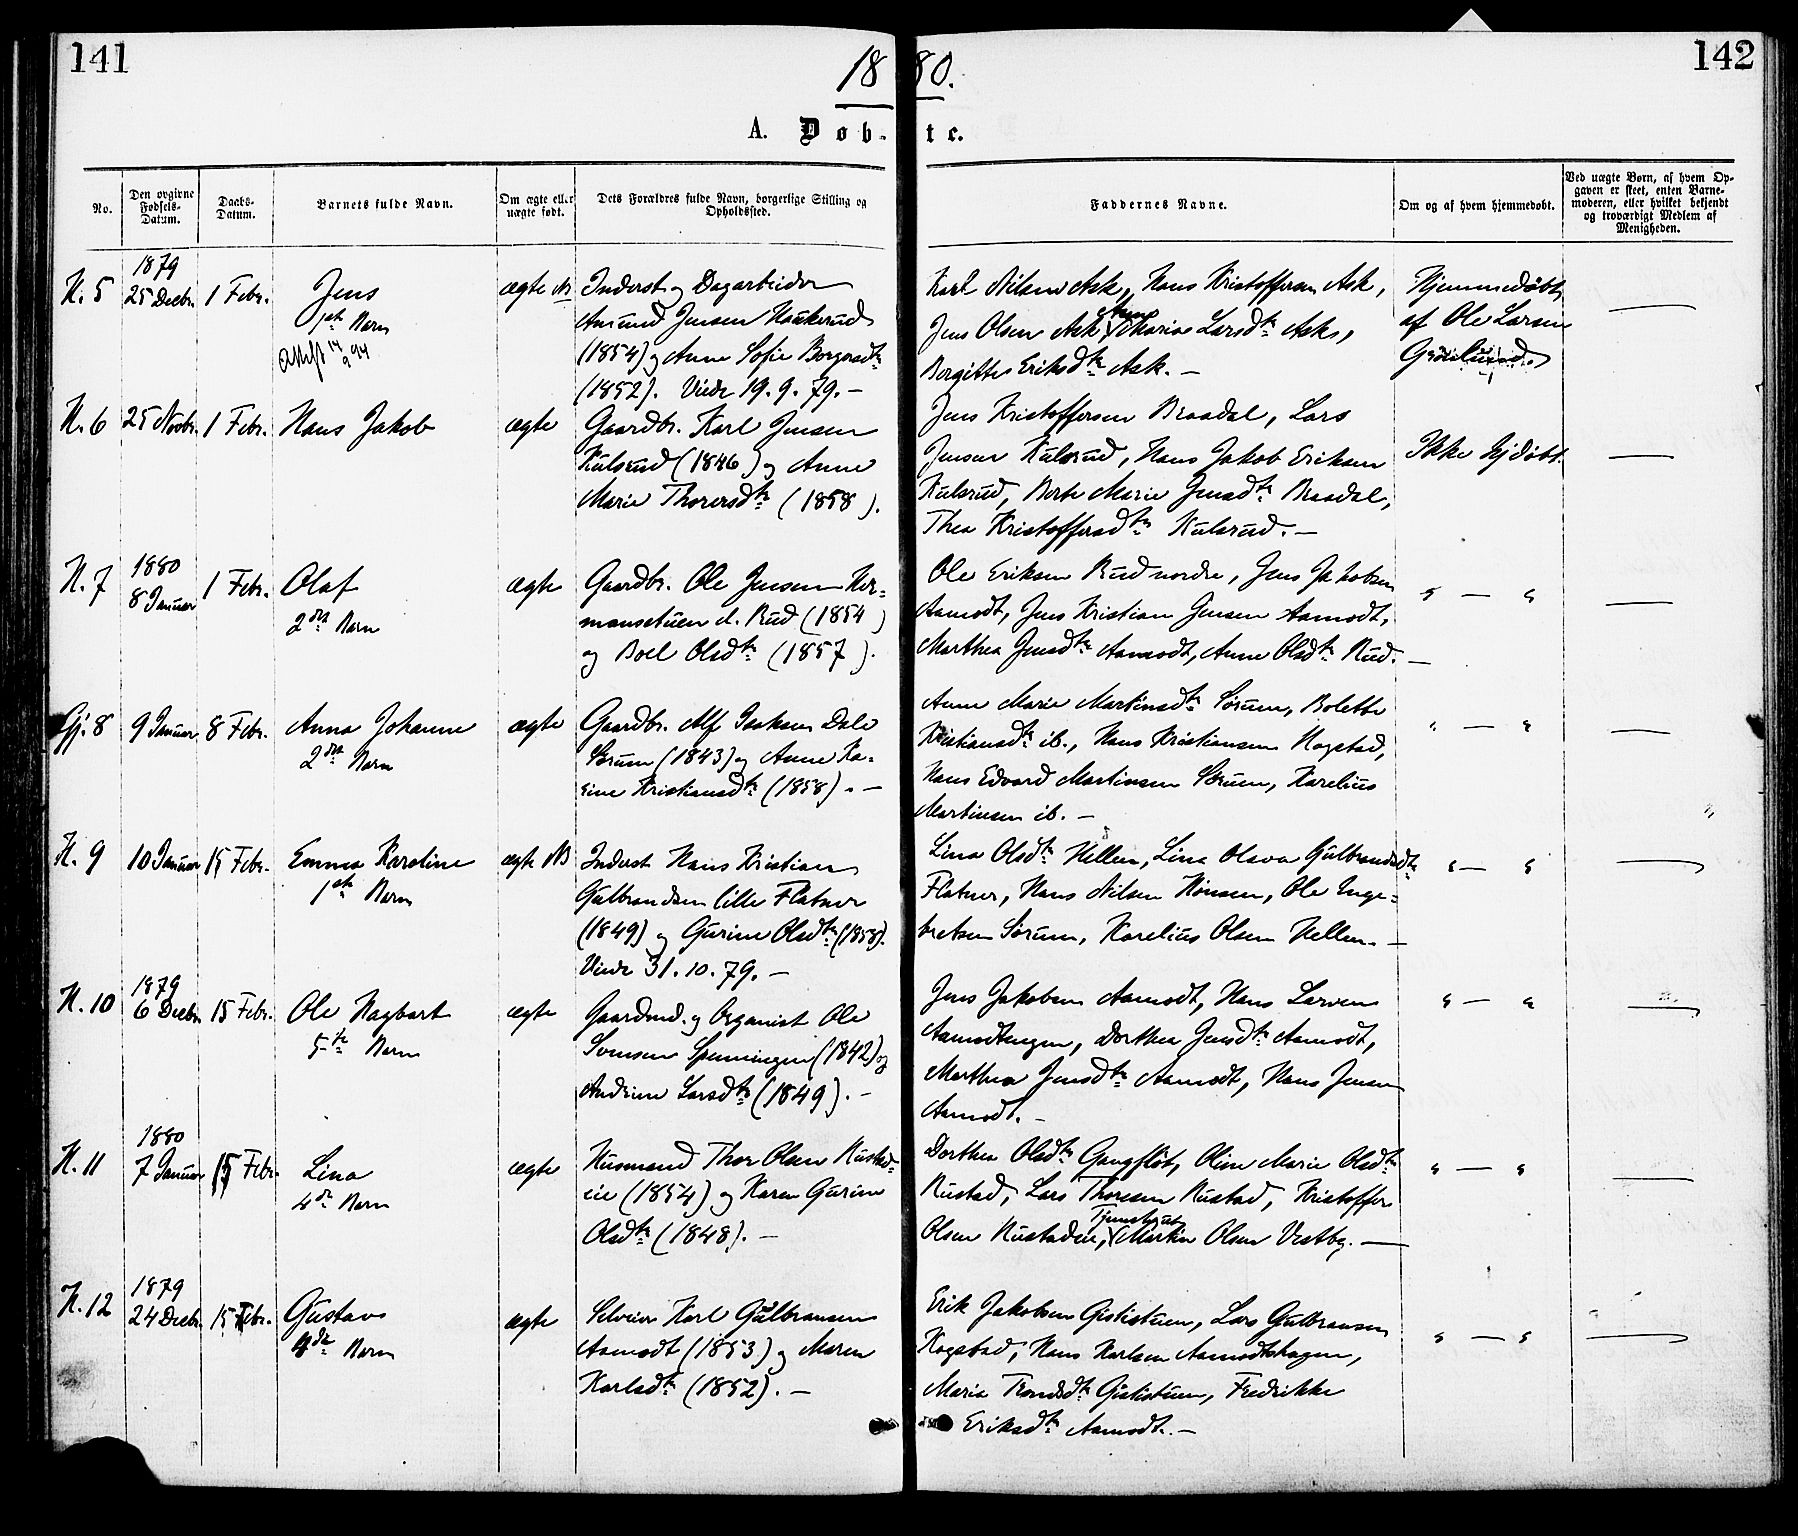 141
142
18 80.
A. Døb- te.
No.
Den opgivne Fødsels-Datum.
Daabs-Datum.
Barnets fulde Navn.
Om ægte eller uægte født.
Dets Forældres fulde Navn, borgerlige Stilling og Opholdssted.
Faddernes Navne.
Om og af hvem hjemmedøbt.
Ved uægte Børn, af hvem Opgaven er skeet, enten Barnemoderen, eller hvilket bekjendt og troværdigt Medlem af Menigheden.
N. 5
1879
25 Decbr.
1 Febr.
Jens
1ste Barn
Attest 14/2 94
ægte
Inderst og Dagarbeider
Amund Jensen Haukerud
(1854) og Anne Sofie Borgersdtr
(1852). Viede 19.9.79. –
Karl Nilsen Ask, Hans Kristoffersen Ask,
Jens Olsen Ask, Maria Larsdtr Ask,
Bergitte Eriksdtr Ask. –
Hjemmedøbt
af Ole Larsen
N. 6
25 Novbr.
1 Febr.
Hans Jakob
ægte
Gaardbr. Karl Jensen
Kulsrud (1846) og Anne
Marie Thorersdtr (1858).
Jens Kristoffersen Braadal, Lars
Jensen Kulsrud, Hans Jakob Eriksen
Kulsrud, Berte Marie Jensdtr Braadal,
Thea Kristoffersdtr Kulsrud. –
Ikke Hjdøbt.
N. 7
1880
8 Januar
1 Febr.
Olaf
2det Barn
ægte
Gaardbr. Ole Jensen Her-
manstuen d. Rud (1854)
og Boel Olsdtr (1857).
Ole Eriksen Rud nordre, Jens Jakobsen
Aamodt, Jens Kristian Jensen Aamodt,
Marthea Jensdtr Aamodt, Anne Olsdtr Rud. –
" — "
Gj. 8
9 Januar
8 Febr.
Anna Johanne
2det Barn
ægte
Gaardbr. Alf Isaksen Dale
Sørum (1843) og Anne Ka-
rine Kristiansdtr (1858). –
Anne Marie Martinsdtr Sørum, Bolette
Kristiansdtr ib., Hans Kristiansen Hogstad,
Hans Edvard Martinsen Sørum, Karelius
Martinsen ib. –
" — "
N. 9
10 Januar
15 Febr.
Emma Karoline
1ste Barn
ægte NB
Inderst Hans Kristian
Gulbrandsen lille Flatner
(1849) og Gurine Olsdtr (1858).
Viede 31.10.79. –
Lina Olsdtr Hellen, Lina Olava Gulbrandsdtr
Flatner, Hans Nilsen Hønsen, Ole Inge-
bretsen Sørum, Karelius Olsen Hellen. –
" — "
N. 10
1879
6 Decbr.
15 Febr.
Ole Hagbart
5te Barn
ægte
Gaardmd. og Organist Ole
Svensen Spenningen (1842) og
Andrine Larsdtr (1849). –
Jens Jakobsen Aamodt, Hans Larsen
Aamodtengen, Dorthea Jensdtr Aamodt,
Marthea Jensdtr Aamodt, Hans Jensen
Aamodt. –
" — "
N. 11
1880
7 Januar
15 Febr.
Lina
4de Barn
ægte
Husmand Thor Olsen Rustad-
eie (1854) og Karen Gurine
Olsdtr (1848). –
Dorthea Olsdtr Gangfløt, Oline Marie Olsdtr
Rustad, Lars Thoresen Rustad, Kristoffer
Olsen Rustadeie, Tjenestgut Martin Olsen Vestby. –
" — "
N. 12
1879
24 Decbr.
15 Febr.
Gustav
4de Barn
ægte
Selveier Karl Gulbransen
Aamodt (1853) og Maren
Karlsdtr (1852). –
Erik Jakobsen Gislistuen, Lars Gulbransen
Kogstad, Hans Karlsen Aamodtshagen,
Maria Trondsdtr Gislistuen, Fredrikke
Eriksdtr Aamodt. –
" — "